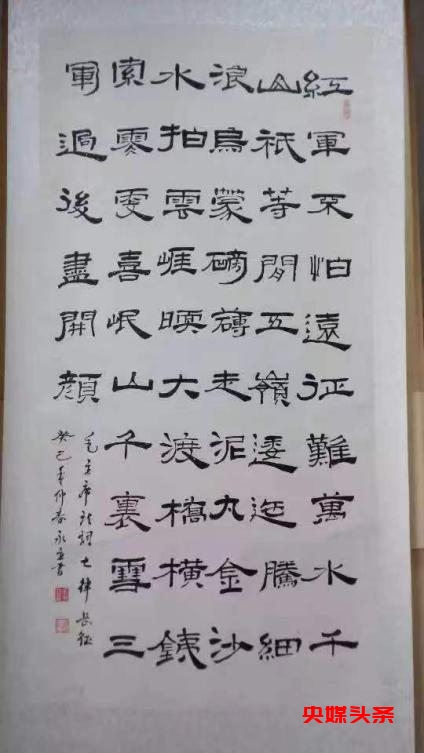 紅軍不怕遠征難萬水千
山祇等閒五嶺逶迤騰細
浪烏蒙磅礴走泥丸金沙
水拍雲崕暖大渡橋橫銕
索寒更喜岷山千裏雪三
軍過後盡開顔
毛主席诗詞七律長征
癸巳年仲春永書
央媒头条